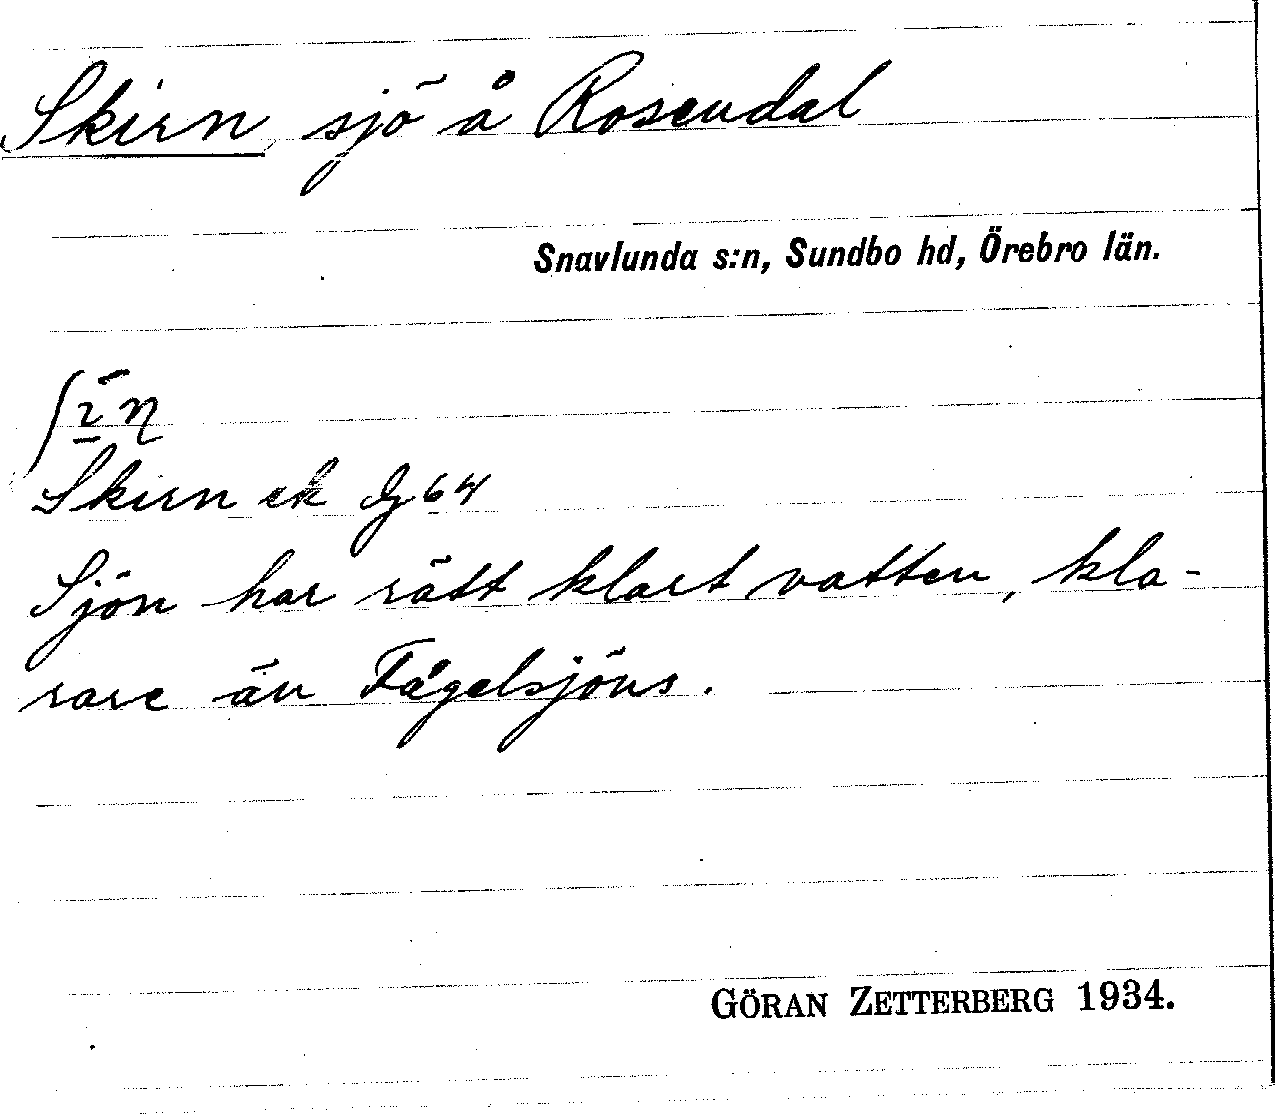 Skirn, sjö å Rosendal
Snavlunda s:n, Sundbo hd, Örebro län.
Skirn ek Jg 64
Sjön har rätt klart vatten, kla-
rare än Fågelsjöns.
GÖRAN ZETTERBERG 1934.